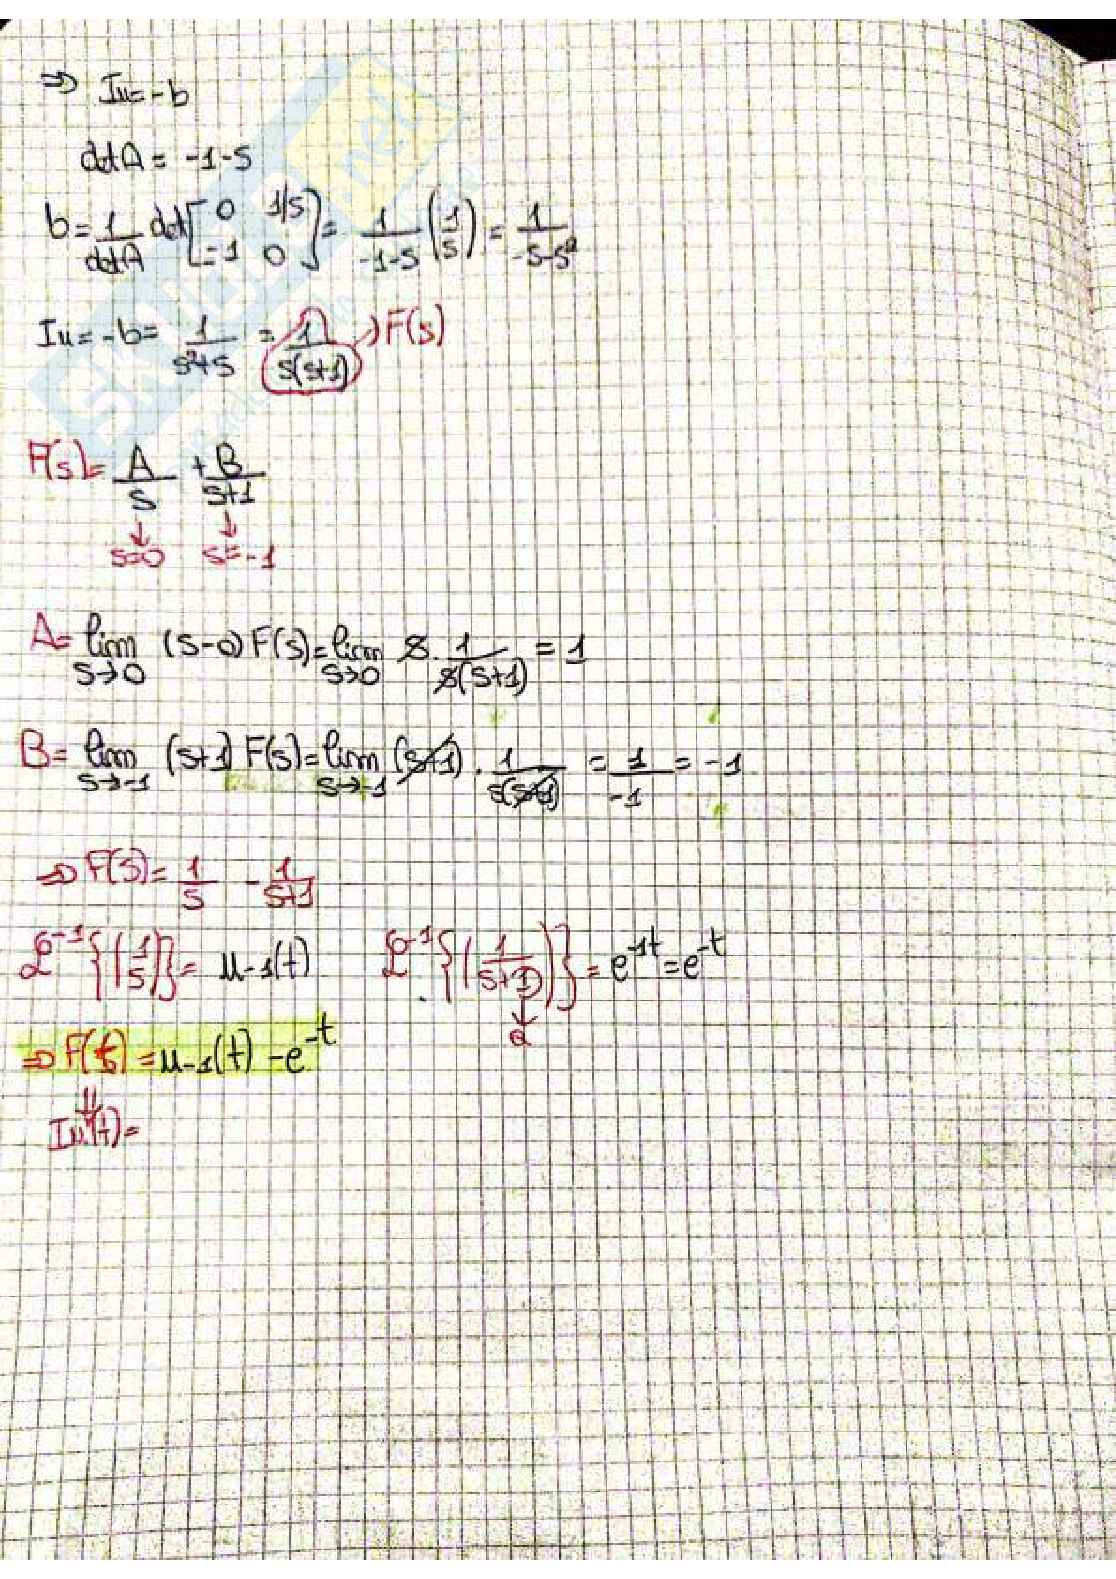 ⇒ Iu = -b
det A = -1-s
b = 1/det A det [0 1/s; -1 0] = 1/(-1-s) (1/s) = 1/(-s-s²)
Iu = -b = 1/(s²+s) = 1/(s(s+1)) → F(s)
F(s) = A/s + B/(s+1)
↓ s=0 ↓ s=-1
A = lim s→0 (s-0) F(s) = lim s→0 s · 1/(s(s+1)) = 1
B = lim s→-1 (s+1) F(s) = lim s→-1 (s+1) · 1/(s(s+1)) = 1/-1 = -1
⇒ F(s) = 1/s - 1/(s+1)
ℒ⁻¹{(1/s)} = u-1(t) ℒ⁻¹{(1/(s+1))} = e^-1t = e^-t
↓ a
⇒ F(t) = u-1(t) - e^-t
⇓
Iu(t) =